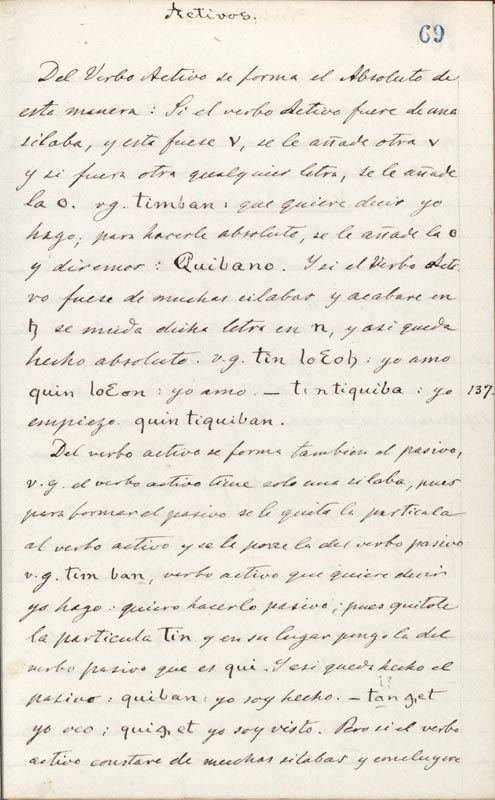 Activos.
69
Del Verbo Activo se forma el Absoluto de
esta manera: Si el verbo Activo fuere de una
silaba, y esta fuese v, se le añade otra v
y si fuera otra qualquier letra, se le añade
la o. vg. timban: que quiere decir yo
hago; para hacerle absoluto, se le añade la o
y diremos: Quibano. Y si el Verbo Acti-
vo fuese de muchas silabas y acabare en
ꜧ se muda dicha letra en n, y asi queda
hecho absoluto. v.g. tin loɛoꜧ: yo amo
quin loɛon: yo amo. — tintiquiba: yo
137.
empiezo. quintiquiban.
Del verbo activo se forma tambien el pasivo,
v.g. el verbo activo tiene solo una silaba, pues
para formar el pasivo se le quita la particula
al verbo activo y se le pone la del verbo pasivo
v.g. tim ban, verbo activo que quiere decir
yo hago: quiero hacerlo pasivo; pues quitole
la particula tin y en su lugar pongo la del
verbo pasivo que es qui. Y asi queda hecho el
pasivo: quiban: yo soy hecho. —
yo veo; yo soy visto. Pero si el verbo
activo constare de muchas silabas y concluyere